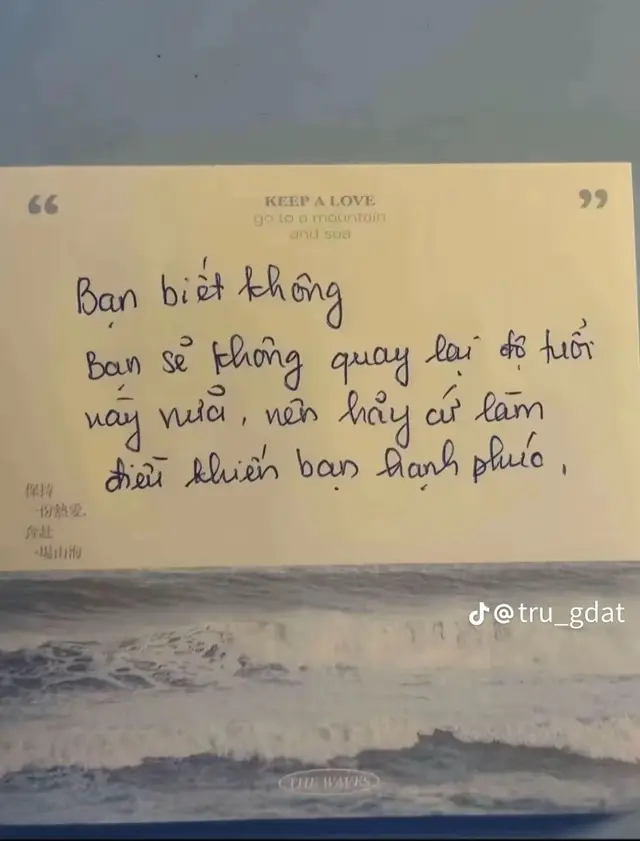 “ ”
KEEP A LOVE
go to a mountain
and sea
Bạn biết không
Bạn sẽ không quay lại độ tuổi
này nữa, nên hãy cứ làm
điều khiến bạn hạnh phúc.
保持
一份熱愛,
奔赴
一場山海
@tru_gdat
THE WAVES